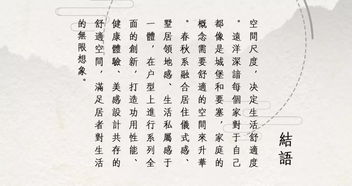 結語
空間尺度，決定生活舒適度
。遠洋深諳每個家對于自己
都像是城堡和要塞，家庭的
概念需要舒適的空間來升華
。春秋系融合居住儀式感、
墅居領地感、生活私屬感于
一體，在户型上進行系列全
面的創新，打造功用性能、
健康體驗、美感設計共存的
舒適空間，滿足居者對生活
的無限想象。